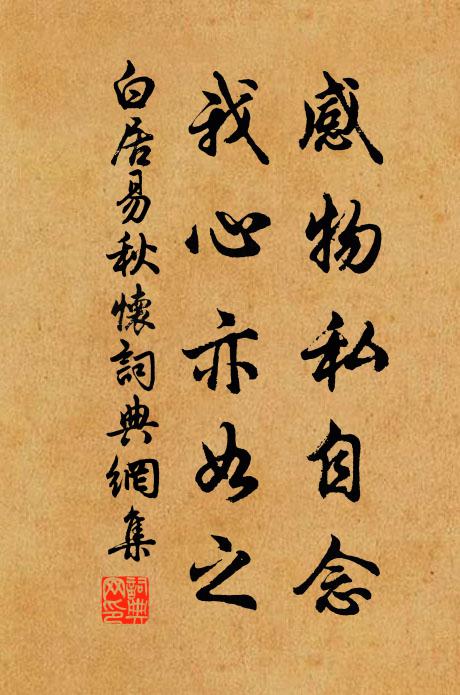 感物私自念
我心亦如之
白居易秋懷詞典網集
詞典
網印